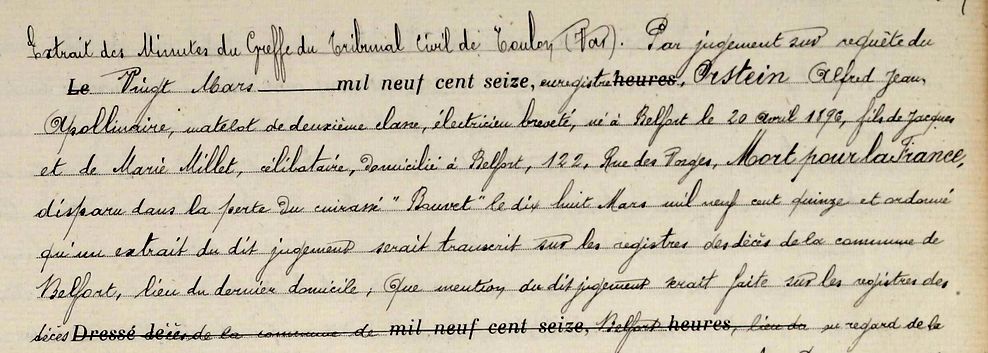 Extrait des Minutes du Greffe du Tribunal Civil de Toulon (Var). Par jugement sur requête du
Le Vingt Mars mil neuf cent seize, enregistré heures, Orstein Alfred Jean
Apollinaire, matelot de deuxième classe, électricien breveté, né à Belfort le 20 avril 1892, fils de Jacques
et de Marie Millet, célibataire, domicilié à Belfort, 122, Rue des Forges, Mort pour la France,
disparu dans la perte du cuirassé "Bouvet" le dix huit Mars mil neuf cent quinze et ordonné
qu'un extrait du dit jugement serait transcrit sur les registres des décès de la commune de
Belfort, lieu du dernier domicile, Que mention du dit jugement serait faite sur les registres des
décès Dressé décès de la commune de mil neuf cent seize, Belfort heures, lieu du au regard de la